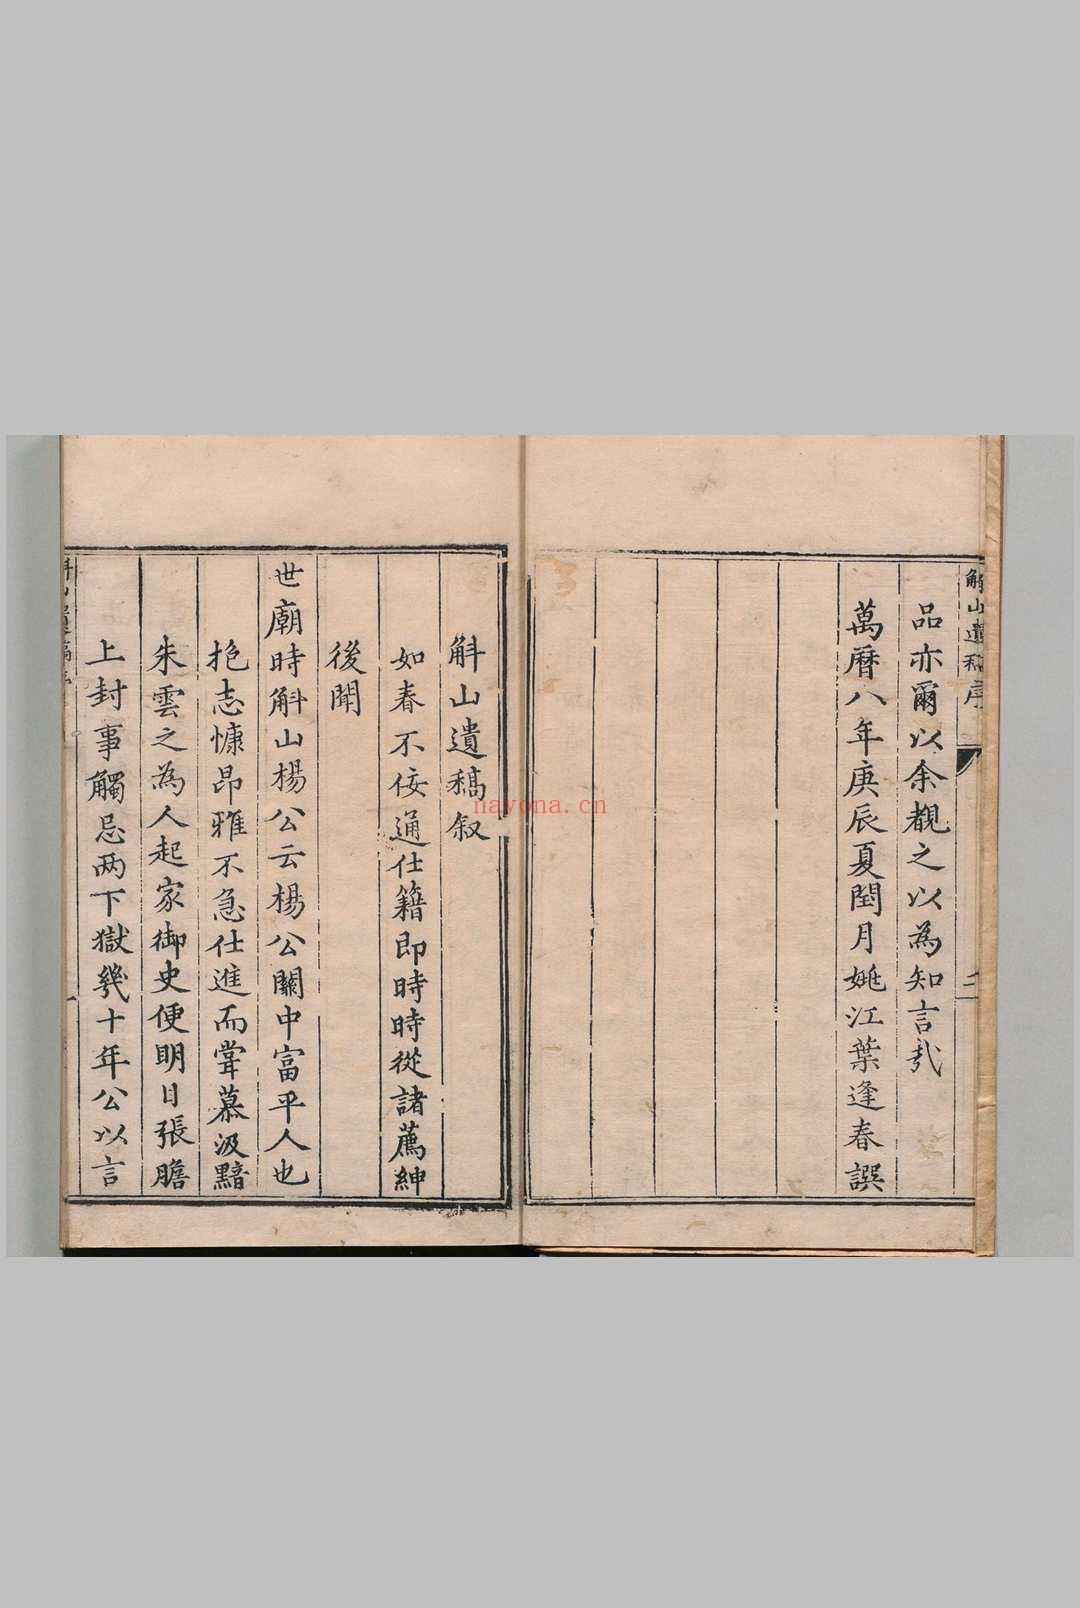 斛山遺稿序
三
品亦爾以余覩之以為知言哉
萬曆八年庚辰夏閏月姚江葉逢春譔
斛山遺稿叙
如春不佞通仕籍即時時從諸薦紳
後聞
世廟時斛山楊公云楊公關中富平人也
抱志慷昂雅不急仕進而甞慕汲黯
朱雲之為人起家御史便眀目張膽
上封事觸忌两下獄幾十年公以言
一
nayona.cn